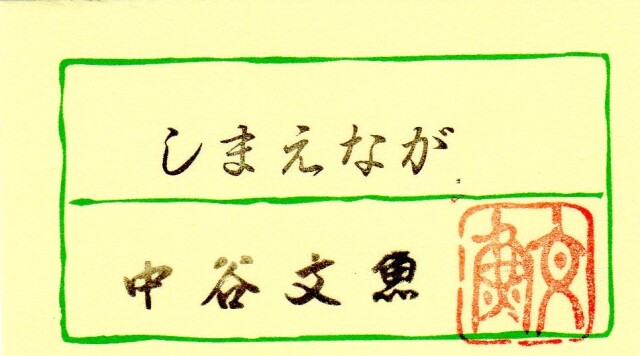 しまえなが
中谷文魚
文魚